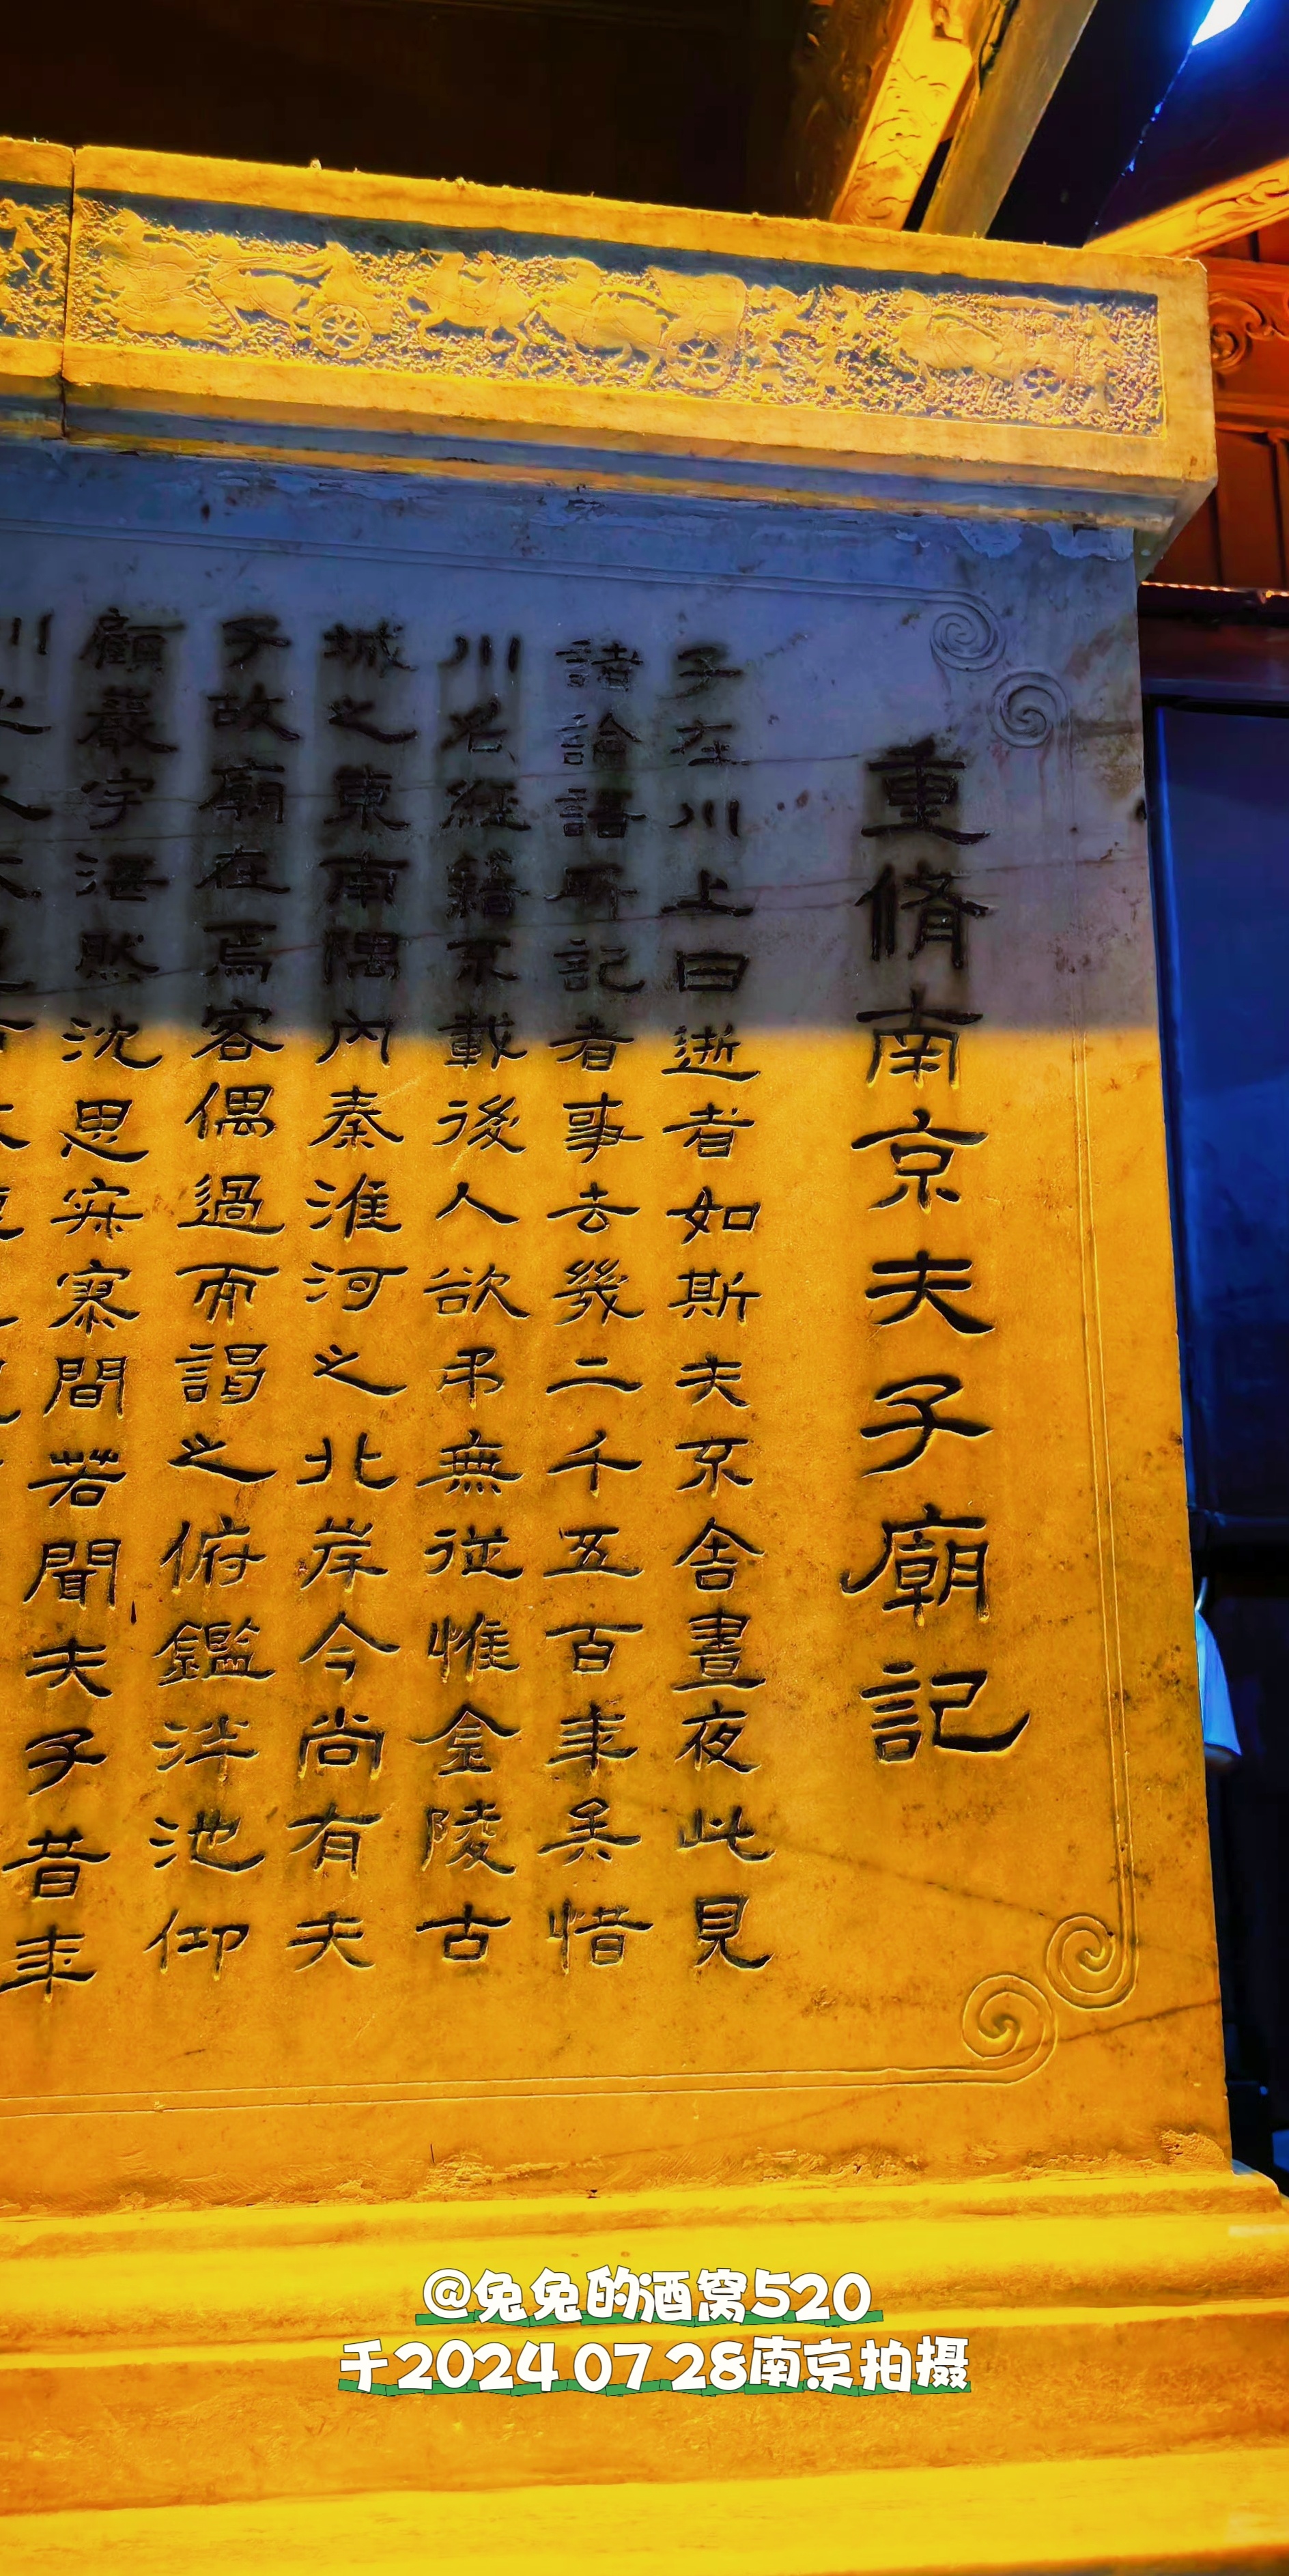 重脩南京夫子廟記
子在川上曰逝者如斯夫不舍晝夜此見
諸論語所記者事去幾二千五百年矣惜
川名經籍不載後人欲弔無從惟金陵古
城之東南隅內秦淮河之北岸今尚有夫
子故廟在焉客偶過而謁之俯鑑泮池仰
顧巖宇湛然沈思寂寥間若聞夫子昔年
@兔兔的酒窝520
于2024 07 28南京拍摄